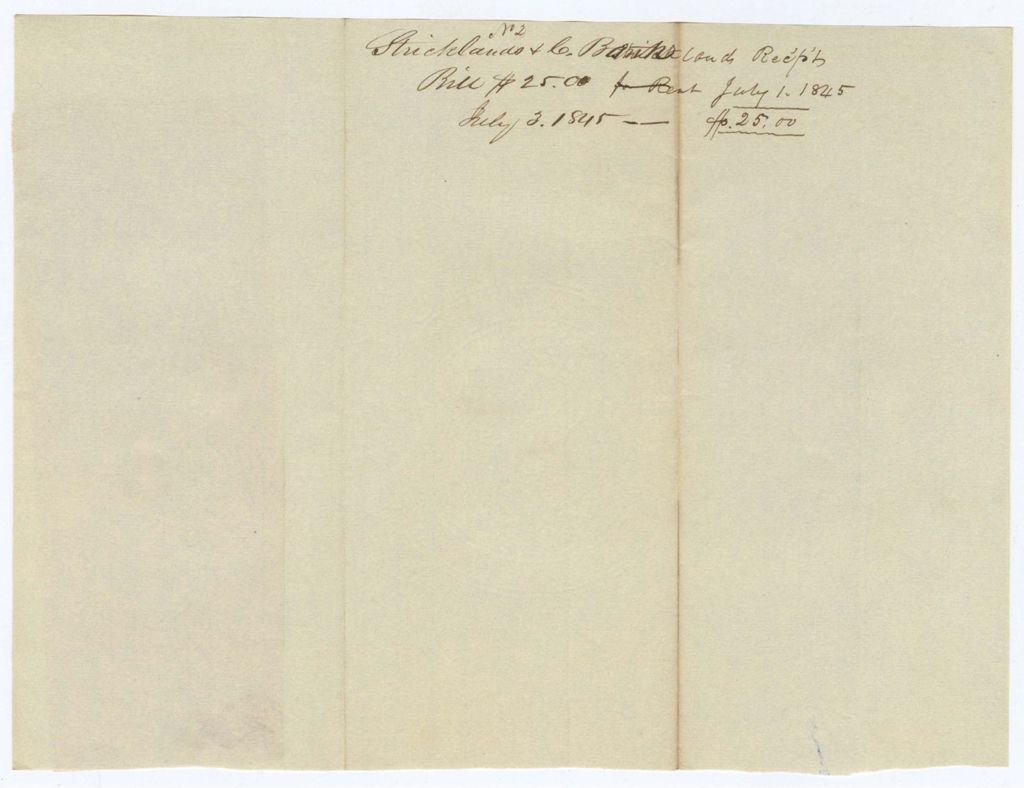 No 2
Stricklands & Co. Rec'pt
Bill $25.00 for Rent July 1. 1845
July 3. 1845 — $.25.00